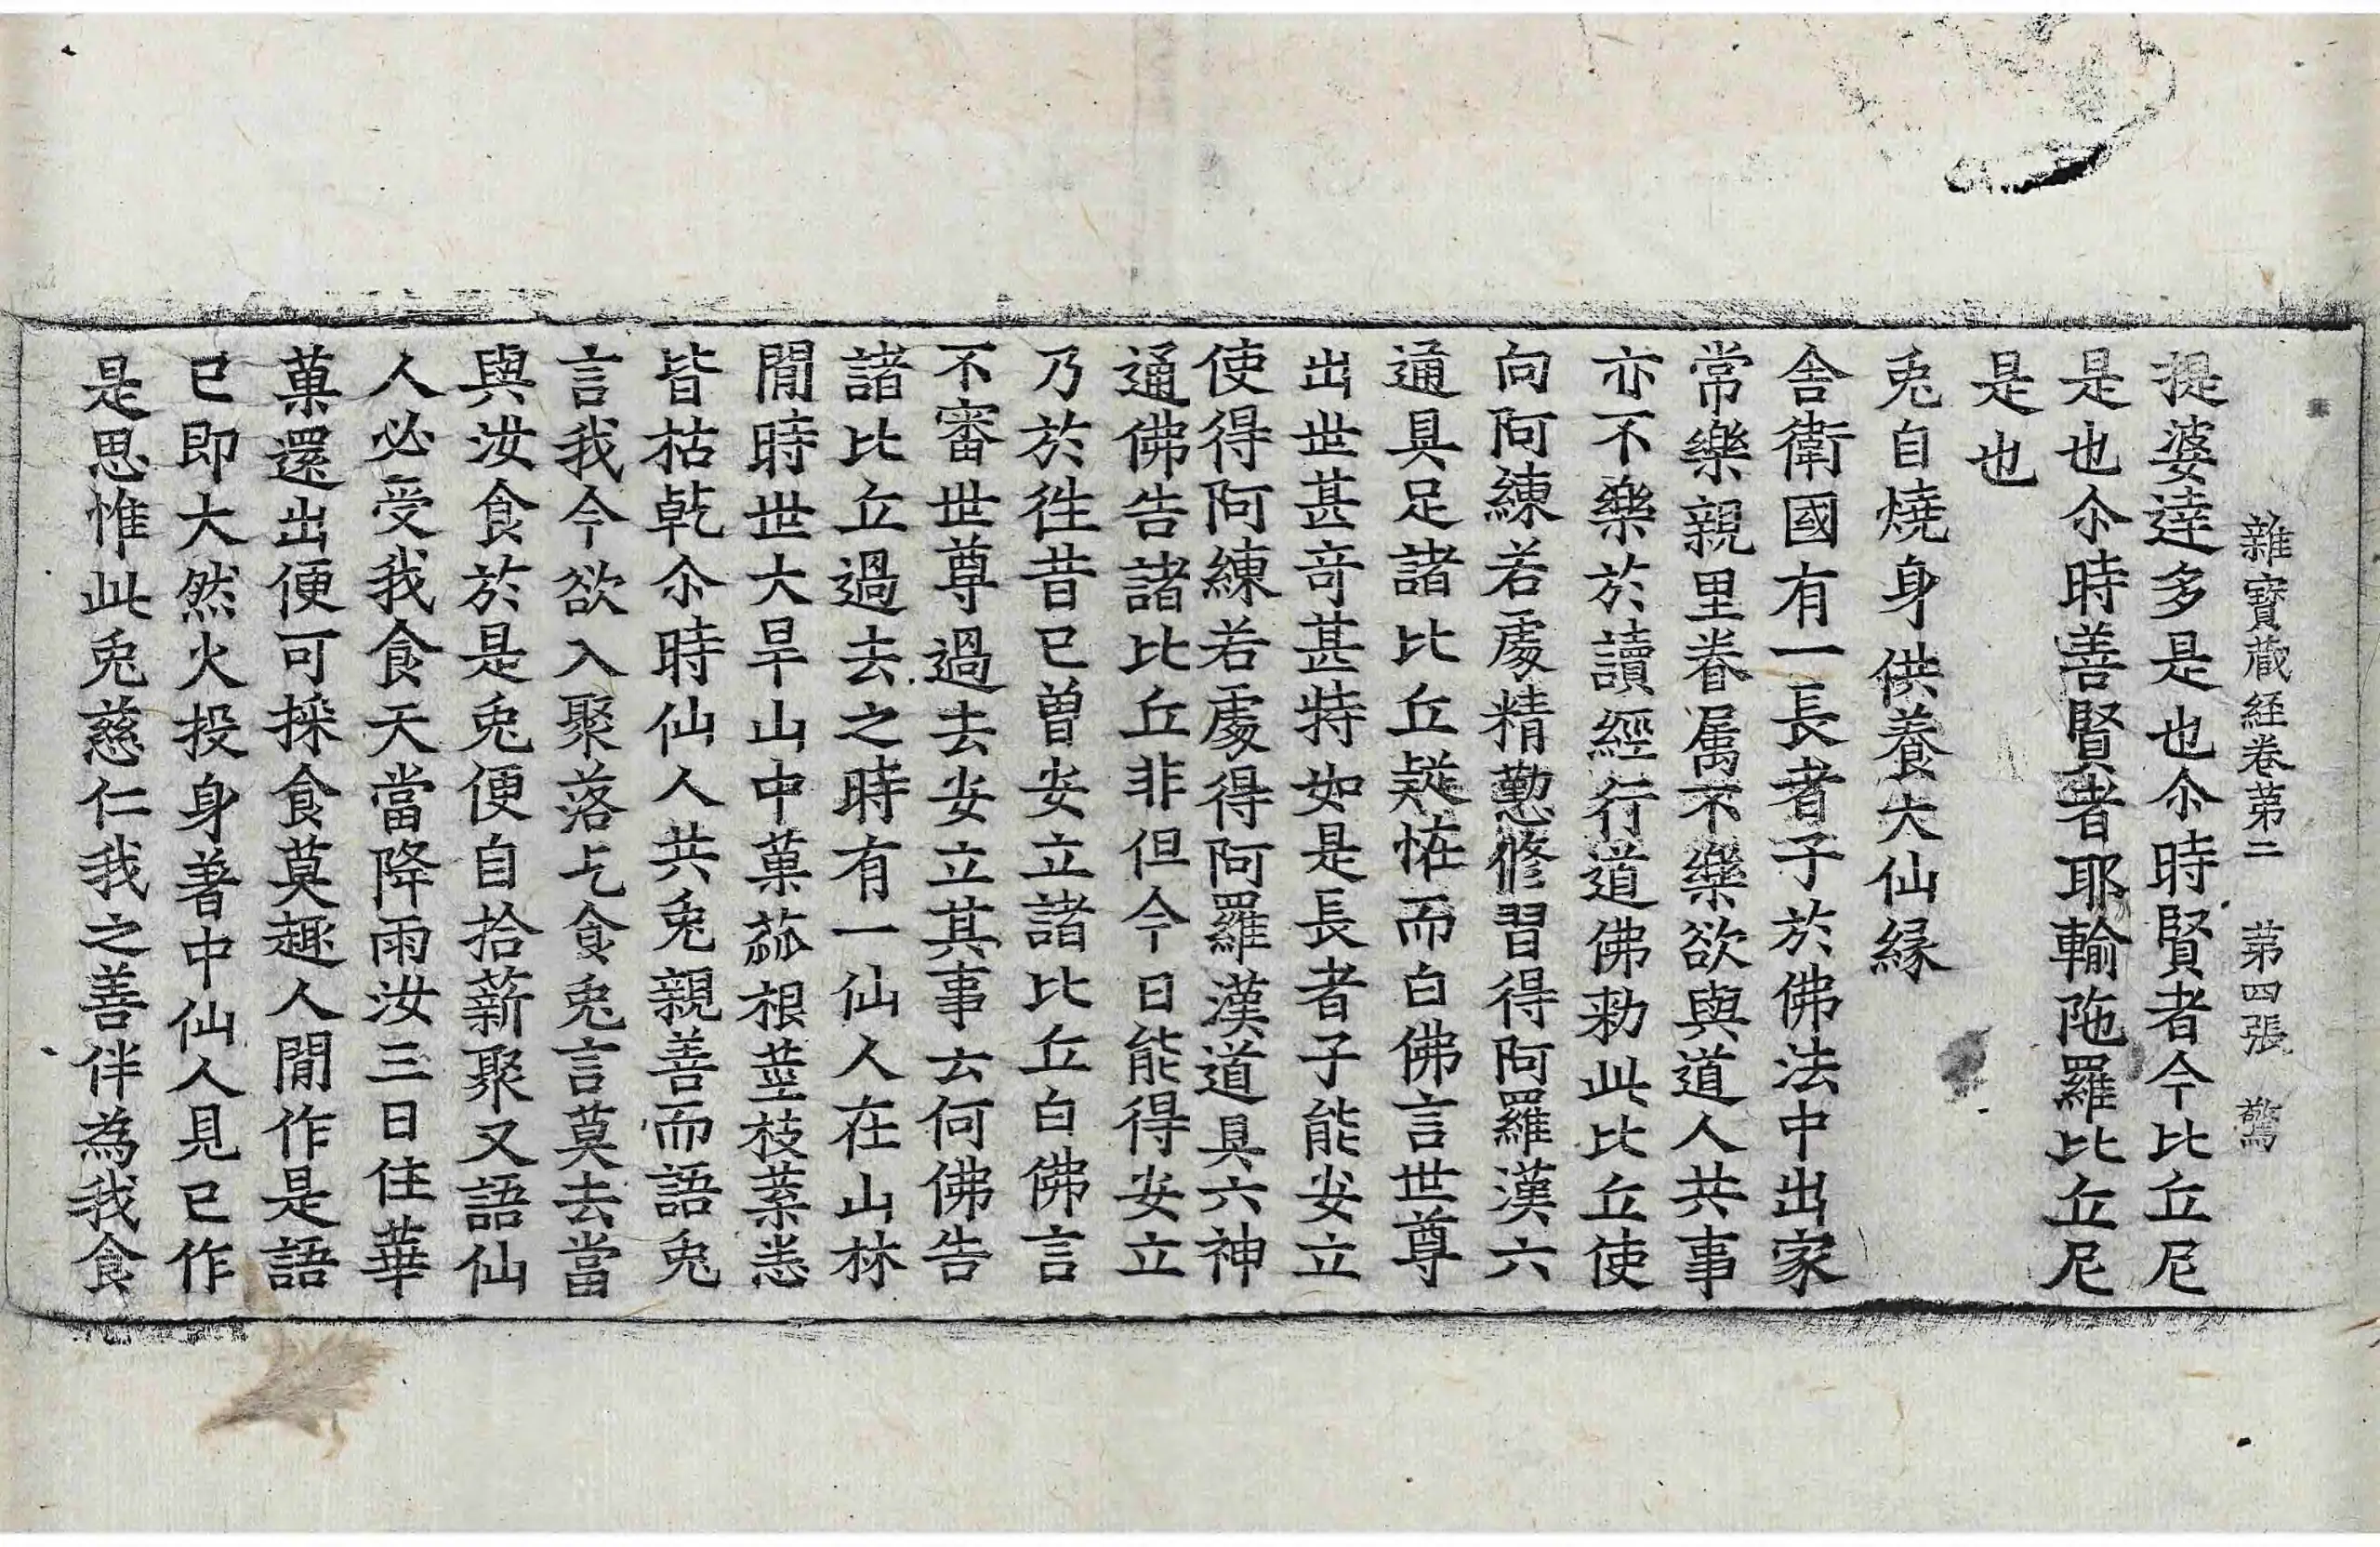 雜寶蔵経卷第二　第四張　驚
提婆達多是也尒時賢者今比丘尼
是也尒時善賢者耶輸陁羅比丘尼
是也
兎自燒身供養大仙縁
舎衛國有一長者子於佛法中出家
常樂親里眷属不樂欲與道人共事
亦不樂於讀經行道佛勑此比丘使
向阿練若處精懃修習得阿羅漢六
通具足諸比丘疑恠而白佛言世尊
出世甚竒甚特如是長者子能安立
使得阿練若處得阿羅漢道具六神
通佛告諸比丘非但今日能得安立
乃於徃昔已曽安立諸比丘白佛言
不審世尊過去安立其事云何佛告
諸比丘過去之時有一仙人在山林
閒時世大旱山中菓蓏根莖枝葉悉
皆枯乹尒時仙人共兎親善而語兎
言我今欲入聚落乞食兎言莫去當
與汝食於是兎便自拾薪聚又語仙
人必受我食天當降雨汝三日住華
菓還出便可採食莫趣人閒作是語
已即大然火投身著中仙人見已作
是思惟此兎慈仁我之善伴為我食